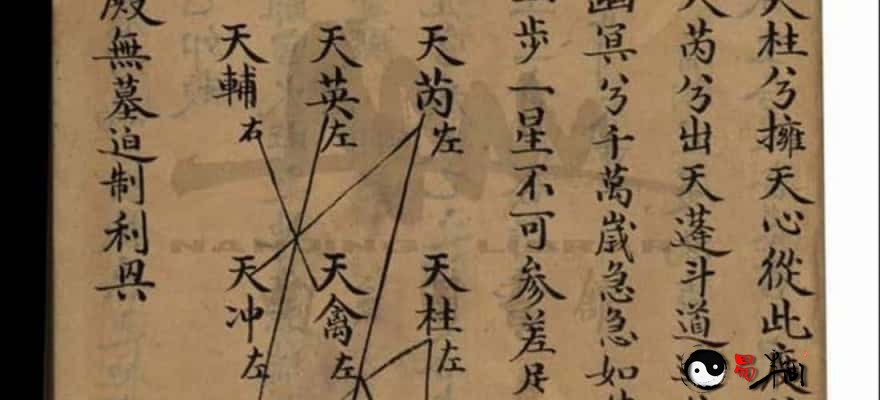 天柱兮擁天心從此
芮兮出天蓬斗道
幽冥兮千萬歲急急如
步一星不可参差
天芮左
天英左
天輔右
天柱左
天禽左
天冲左
無墓迫制利
易